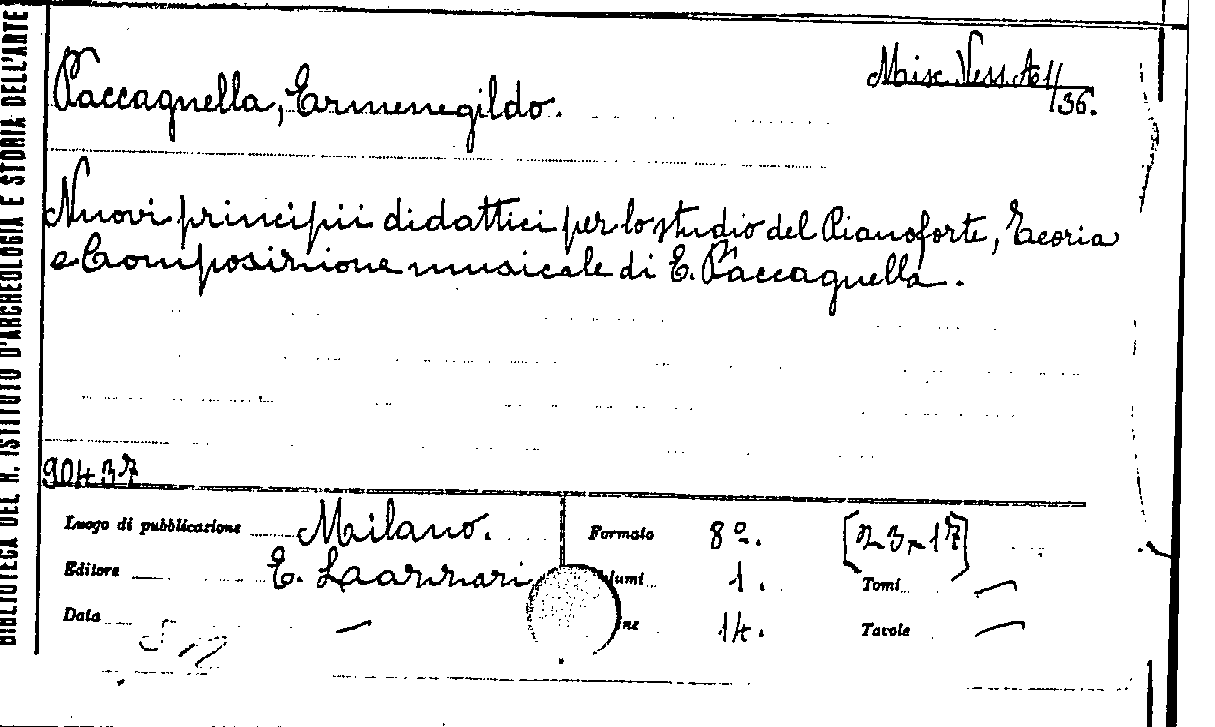 BIBLIOTECA DEL R. ISTITUTO D'ARCHEOLOGIA E STORIA DELL'ARTE
Misc. Vess. A 1/36.
Paccagnella, Ermenegildo.
Nuovi principii didattici per lo studio del Pianoforte, Teoria
e Composizione musicale di E. Paccagnella.
90437
Luogo di pubblicazione Milano. Formato 8º. [23×17]
Editore E. lumi 1. Tomi —
Data — ne 14. Tavole —